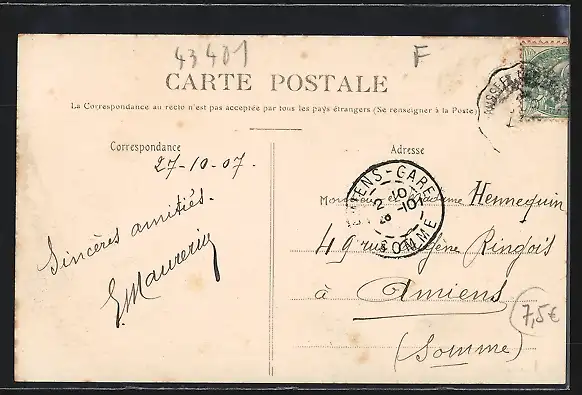 43401
F
CARTE POSTALE
La Correspondance au recto n'est pas acceptée par tous les pays étrangers (Se renseigner à la Poste)
Correspondance
27-10-07.
Sincères amitiés.
Adresse
Monsieur et Madame Hennequin
49 rue Ringois
à Amiens
(Somme)
ENS-GARE
2-10
SOMME
7,5€